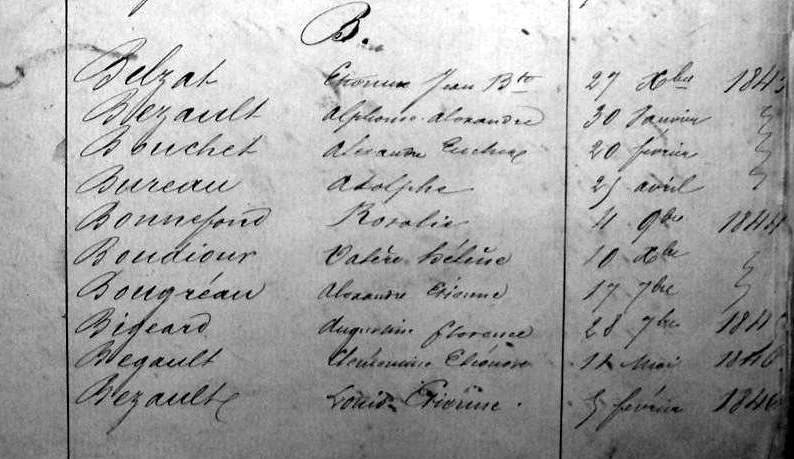 B.
Belzat Etienne Jean Bte 27 Xbre 1843
Bezault Alphonse Alexandre 30 Janvier "
Bouchet Alexandre 20 février "
Bureau Adolphe 25 avril "
Bonnefond Rosalie 4 9bre 1844
Boudiour Valère Hélène 10 Xbre
Bougréau Alexandre Etienne 17 7bre "
Bigeard Augustine florence 28 7bre
Begault Clémentine Eléonore 12 Mai 1846
Bezault Louis Etienne. 5 février 1846